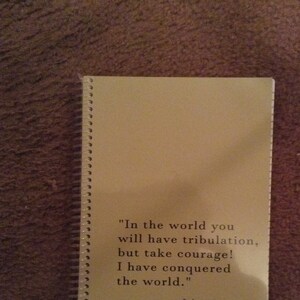 "In the world you
will have tribulation,
but take courage!
I have conquered
the world."